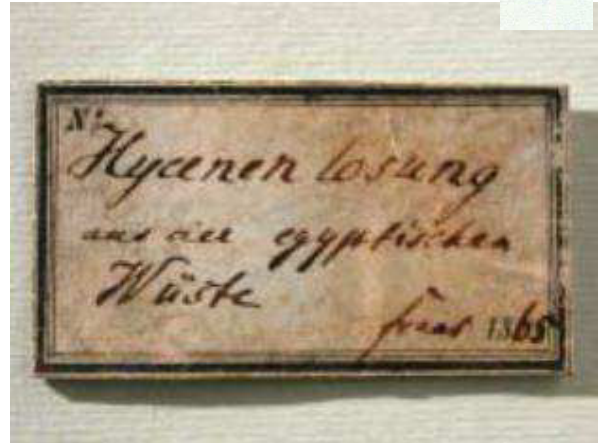 No.
Hyaenen losung
aus der egyptischen
Wüste
fraas 1865